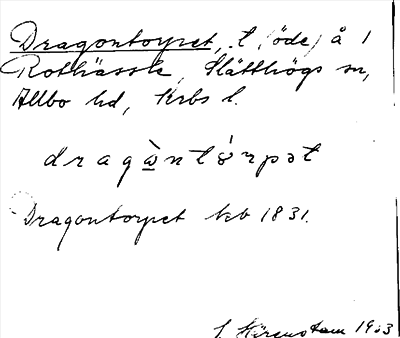 Dragontorpet, t. (öde) å 1
Rothässle, Slätthögs sn,
Allbo hd, Krbs l.
dragὼ̲ntώrpət
Dragontorpet kb 1831.
J. Härenstam 1903